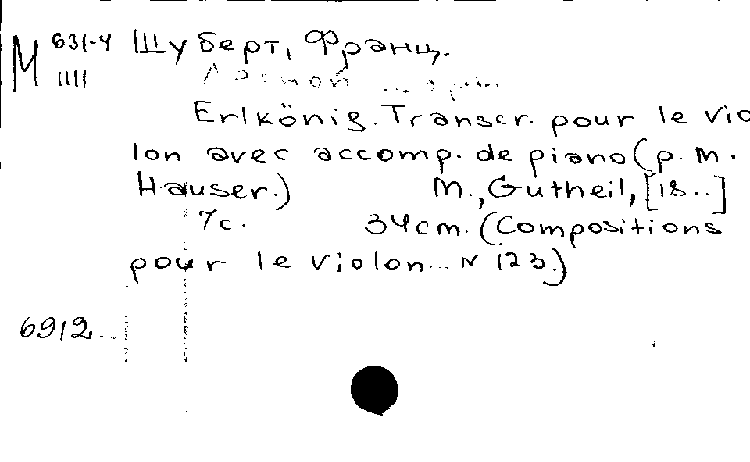 М 631-4 Шуберт, Франц.
1111
Erlkönig. Transcr. pour le vio
lon avec accomp. de piano (p. M.
Hauser.) M., Gutheil, [18..]
7с. 34cm. (Compositions
pour le violon... N 123.)
6912